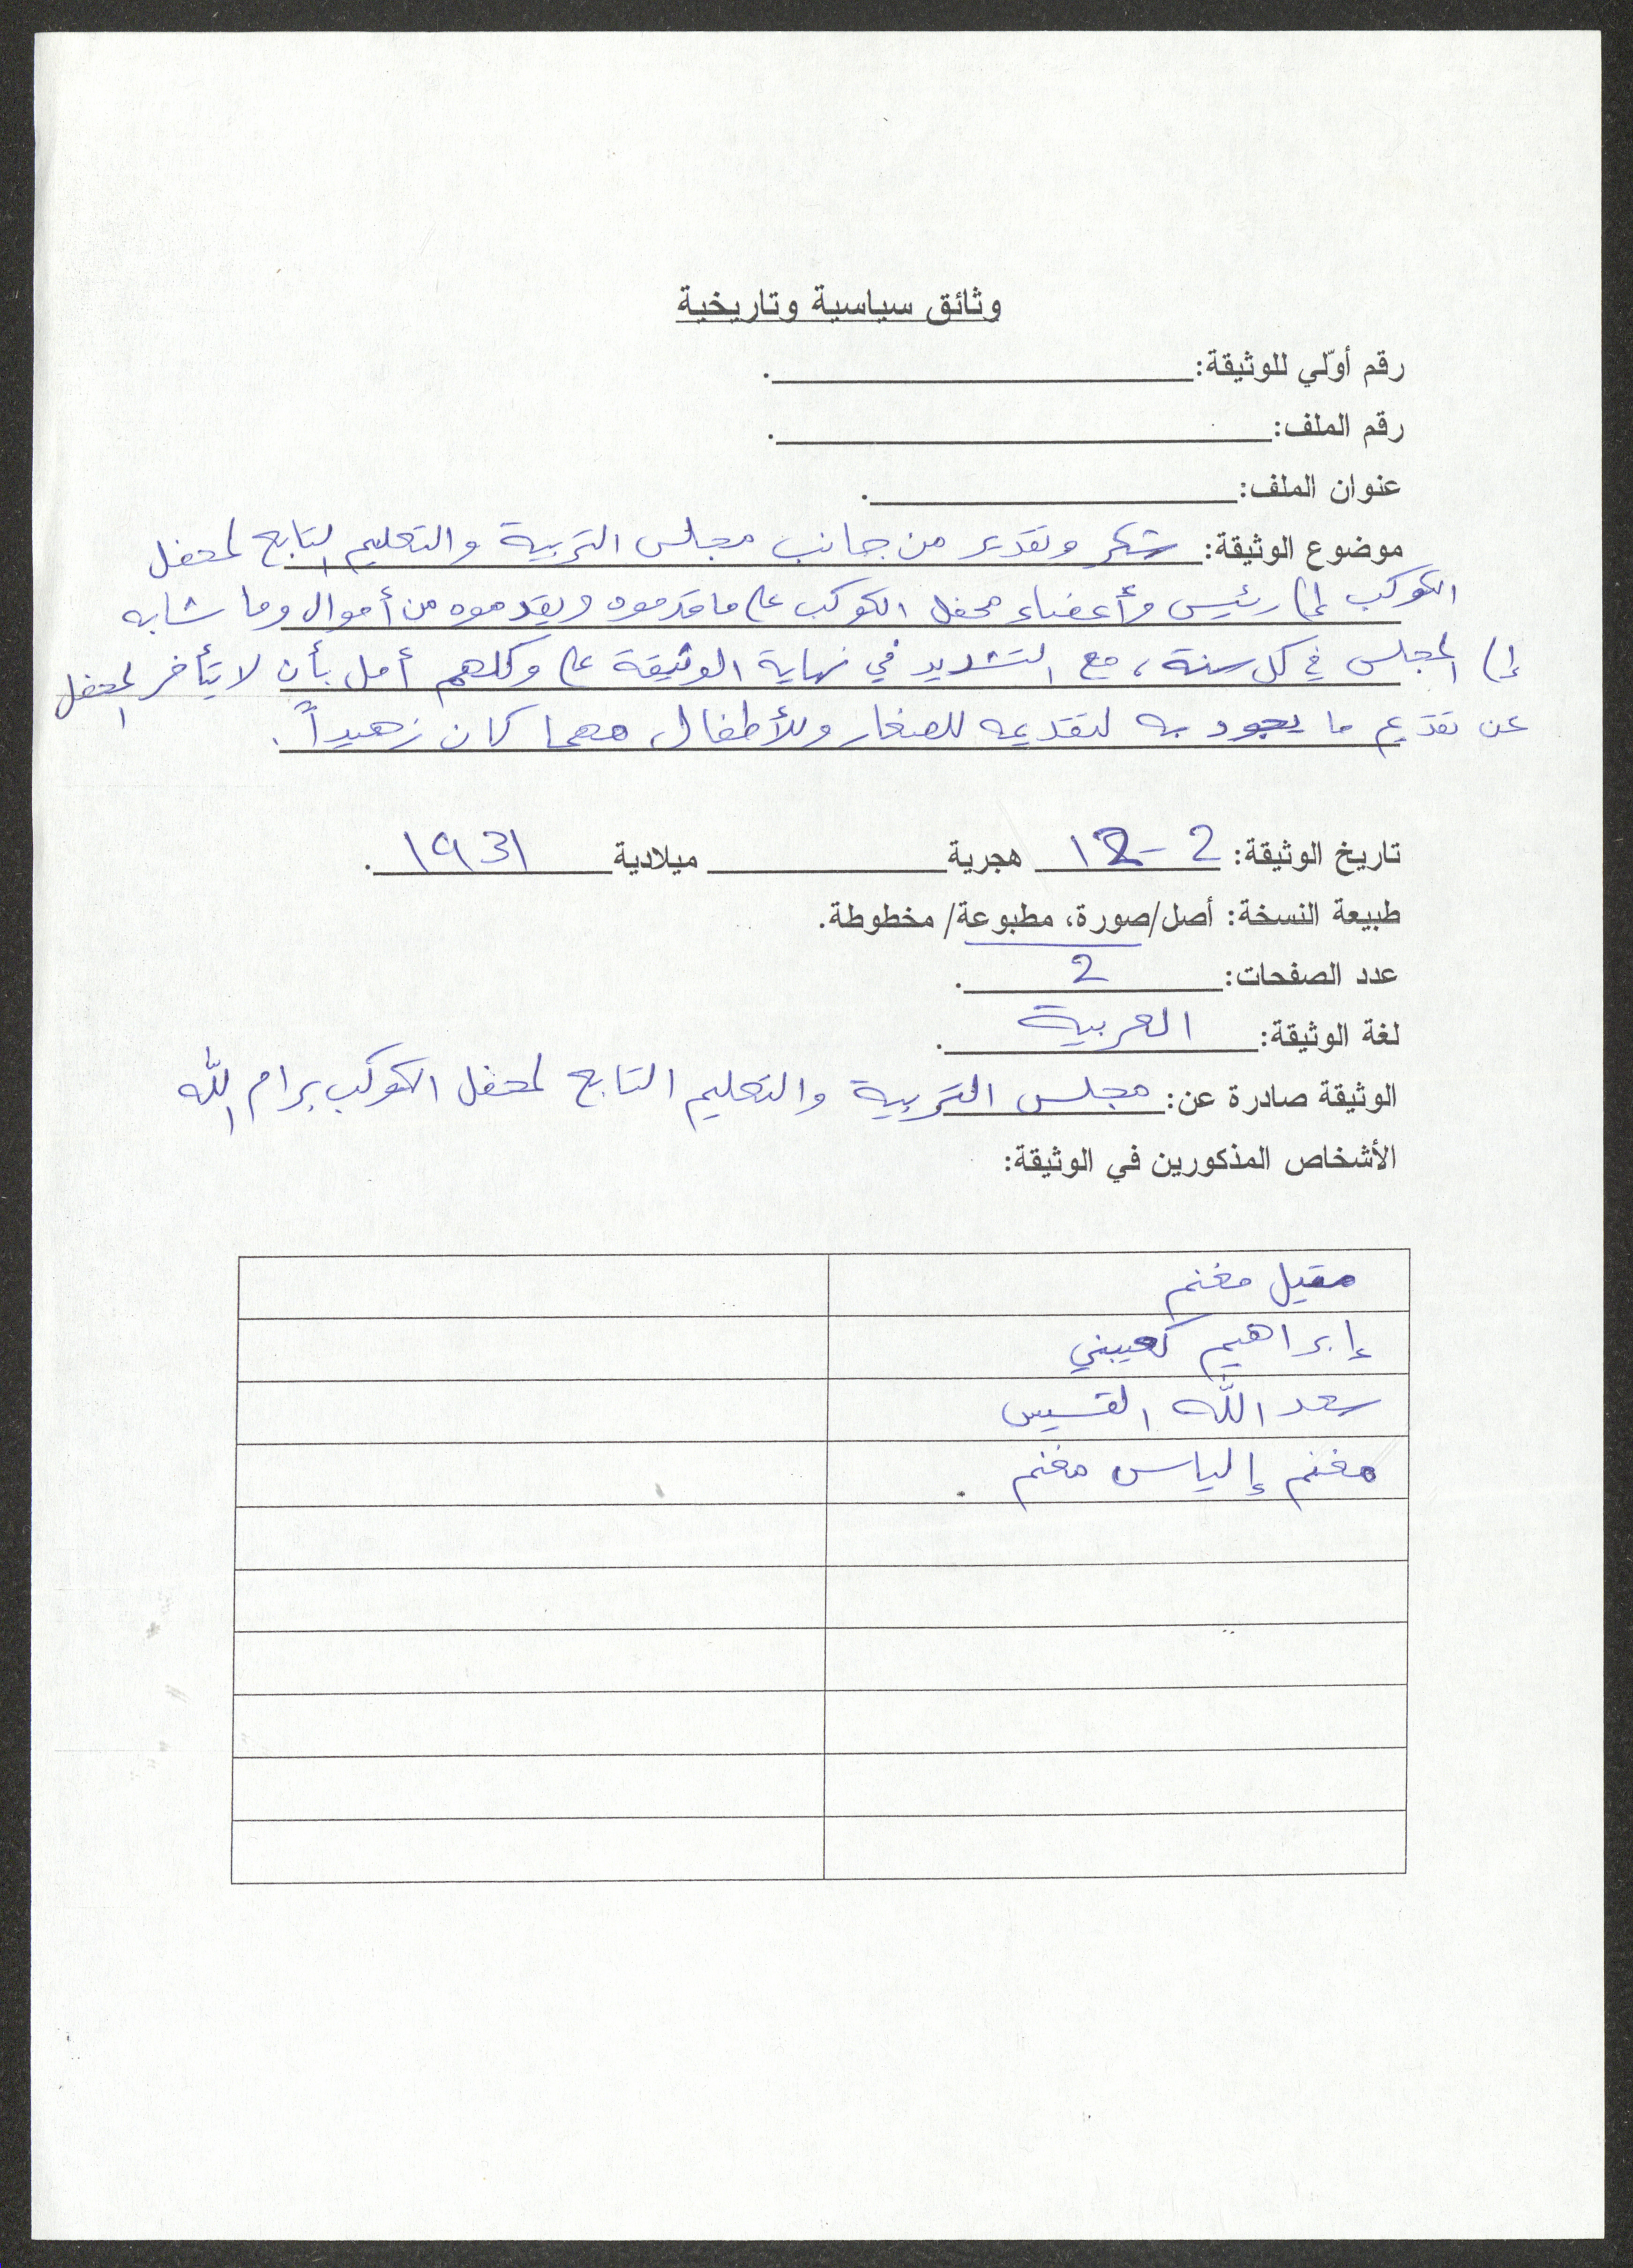 وثائق سياسية وتاريخية
رقم أوّلي للوثيقة: ______.
رقم الملف: ______.
عنوان الملف: ______.
موضوع الوثيقة: شكر وتقدير من جانب مجلس التربية والتعليم التابع لمحفل
الكوكب إلى رئيس وأعضاء محفل الكوكب على ما قدموه ويقدموه من أموال وما شابه
إلى المجلس في كل سنة، مع التشديد في نهاية الوثيقة على وكلهم أمل بأن لا يتأخر المحفل
عن تقديم ما يجود به لتقديمه للصغار وللأطفال مهما كان زهيداً.
تاريخ الوثيقة: 2-12 هجرية ______ ميلادية 1931.
طبيعة النسخة: أصل/صورة، مطبوعة/ مخطوطة.
عدد الصفحات: 2.
لغة الوثيقة: العربية.
الوثيقة صادرة عن: مجلس التربية والتعليم التابع لمحفل الكوكب برام الله
الأشخاص المذكورين في الوثيقة:
مقيل مغنم
إبراهيم كعيبني
سعد الله القسيس
مغنم إلياس مغنم.